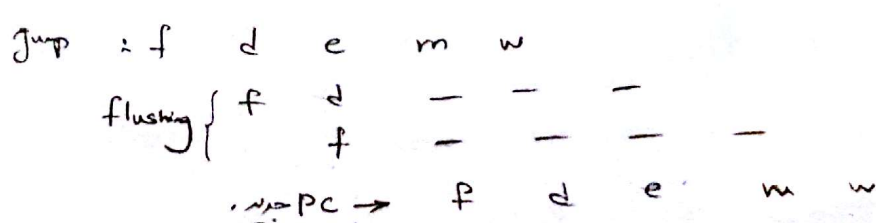 Jump : f d e m w
flushing { f d — — —
f — — — —
جدید PC → f d e m w